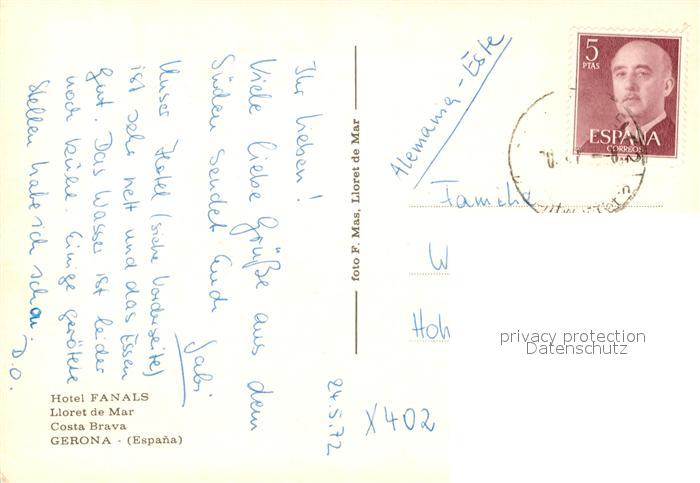 Ihr Lieben!
Viele liebe Grüße aus dem
Süden sendet Euch
Gabi
Unser Hotel (siehe Vorderseite)
ist sehr nett und das Essen
gut. Das Wasser ist leider
noch kühl. Einige gerötete
Stellen habe ich schon.
D.O.
24.5.72
Hotel FANALS
Lloret de Mar
Costa Brava
GERONA - (España)
foto F. Mas, Lloret de Mar
Alemania - Este
5
PTAS
ESPAÑA
CORREOS
Familie
W
Hoh
X402
privacy protection
Datenschutz